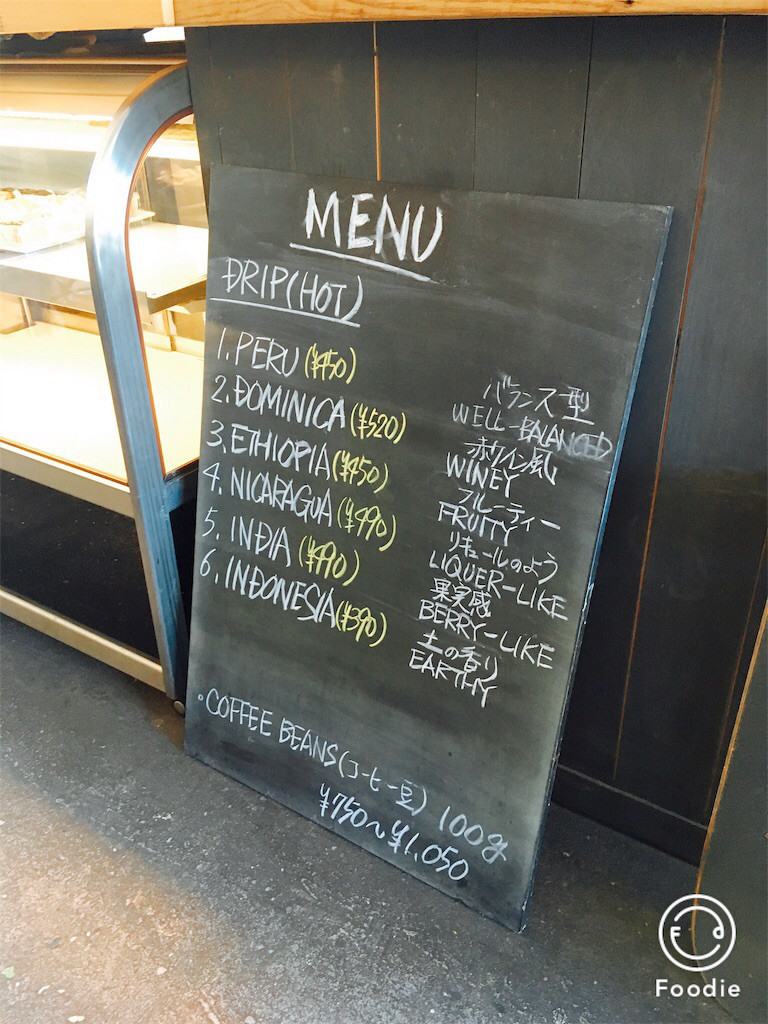 MENU
DRIP(HOT)
1. PERU (¥450)
2. DOMINICA (¥520)
3. ETHIOPIA (¥450)
4. NICARAGUA (¥490)
5. INDIA (¥490)
6. INDONESIA (¥390)
バランス型
WELL-BALANCED
赤ワイン風
WINEY
フルーティー
FRUITY
リキュールのよう
LIQUER-LIKE
果実感
BERRY-LIKE
土の香り
EARTHY
・COFFEE BEANS(コーヒー豆) 100g
¥750〜¥1,050
Fd
Foodie